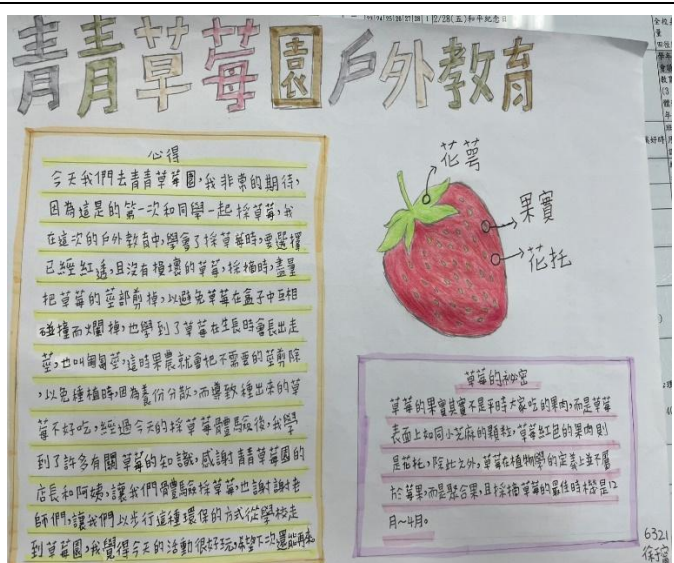 2/28(五)和平紀念日
青青草莓園戶外教育
心得
今天我們去青青草莓園,我非常的期待,
因為這是的第一次和同學一起採草莓,我
在這次的戶外教育中,學會了採草莓時,要選擇
已經紅透,且沒有損壞的草莓,採摘時,盡量
把草莓的莖部剪掉,以避免草莓在盒子中互相
碰撞而爛掉,也學到了草莓在生長時會長出走
莖,也叫匍匐莖,這時果農就會把不需要的莖剪除
,以免種植時,因為養份分散,而導致種出來的草
莓不好吃,經過今天的採草莓體驗後,我學
到了許多有關草莓的知識,感謝青青草莓園的
店長和阿姨,讓我們體驗採草莓,也謝謝老
師們,讓我們以步行這種環保的方式從學校走
到草莓園,我覺得今天的活動很好玩,希望下次還能再來
花萼
果實
花托
草莓的祕密
草莓的果實其實不是平時大家吃的果肉,而是草莓
表面上如同小芝麻的顆粒,草莓紅色的果肉則
是花托,除此之外,草莓在植物學的定義上並不屬
於莓果,而是聚合果,且採摘草莓的最佳時機是12
月~4月。
6321